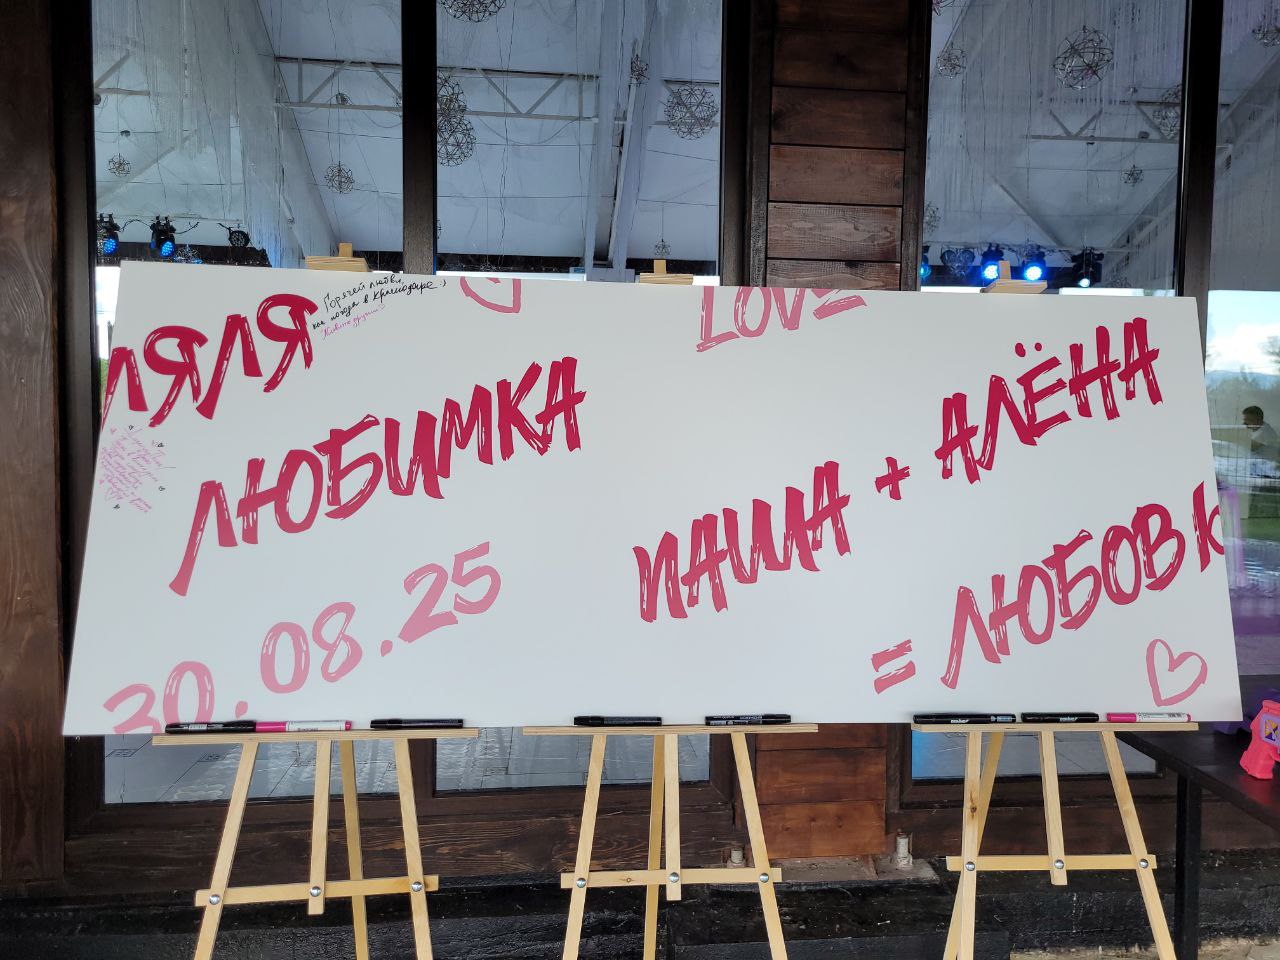 ЛЯЛЯ
Горячей любви,
как погода в Краснодаре :)
LOVE
ЛЮБИМКА
ПАША + АЛЁНА
= ЛЮБОВ Ю
30.08.25